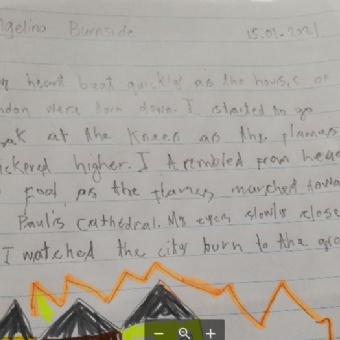 ngelina Burnside 15.01.2021
heart beat quickly as the houses of
ndon were torn down. I started to go
eak at the knees as the flames
ickered higher. I trembled from head
foot as the flames marched towa
Paul's Cathedral. My eyes slowly close
I watched the city burn to the gro